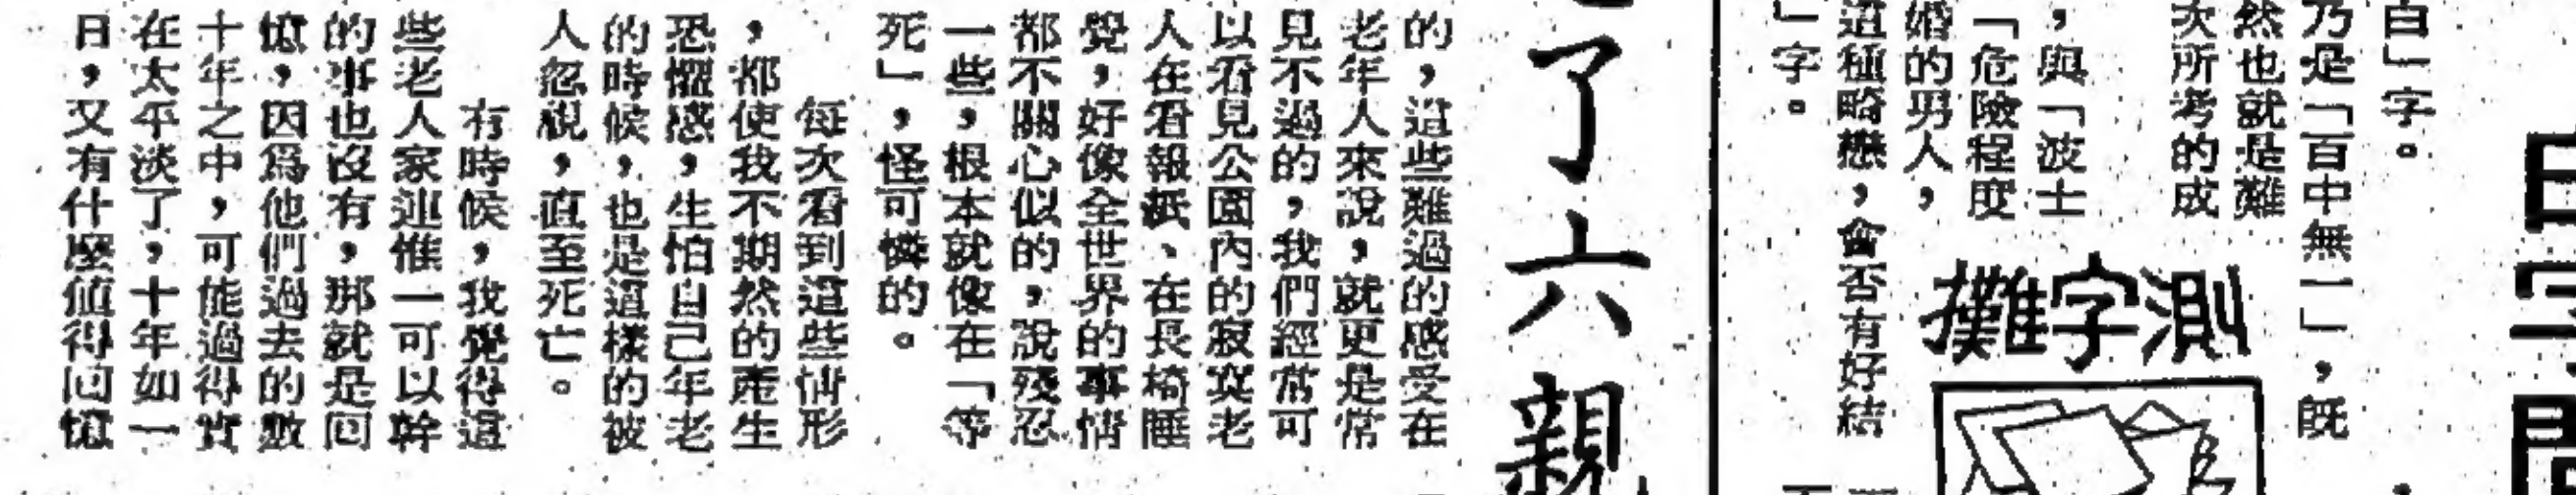 白」字。
乃是「百中無一」，既
然也就是難
次所考的成
，與「波士
「危險程度
婚的男人，
這種畸戀，會否有好結
」字。
測字攤
了六親
的，這些難過的感受在
老年人來說，就更是常
見不過的，我們經常可
以看見公園內的寂寞老
人在看報紙、在長椅睡
覺，好像全世界的事情
都不關心似的，說殘忍
一些，根本就像在「等
死」，怪可憐的。
每次看到這些情形
，都使我不期然的產生
恐懼感，生怕自己年老
的時候，也是這樣的被
人忽視，直至死亡。
有時候，我覺得這
些老人家連惟一可以幹
的事也沒有，那就是回
憶，因為他們過去的數
十年之中，可能過得實
在太平淡了，十年如一
日，又有什麼值得回憶